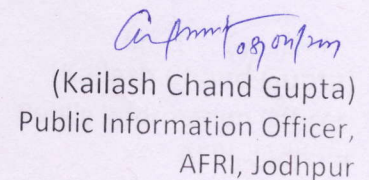 (Kailash Chand Gupta)
Public Information Officer,
AFRI, Jodhpur